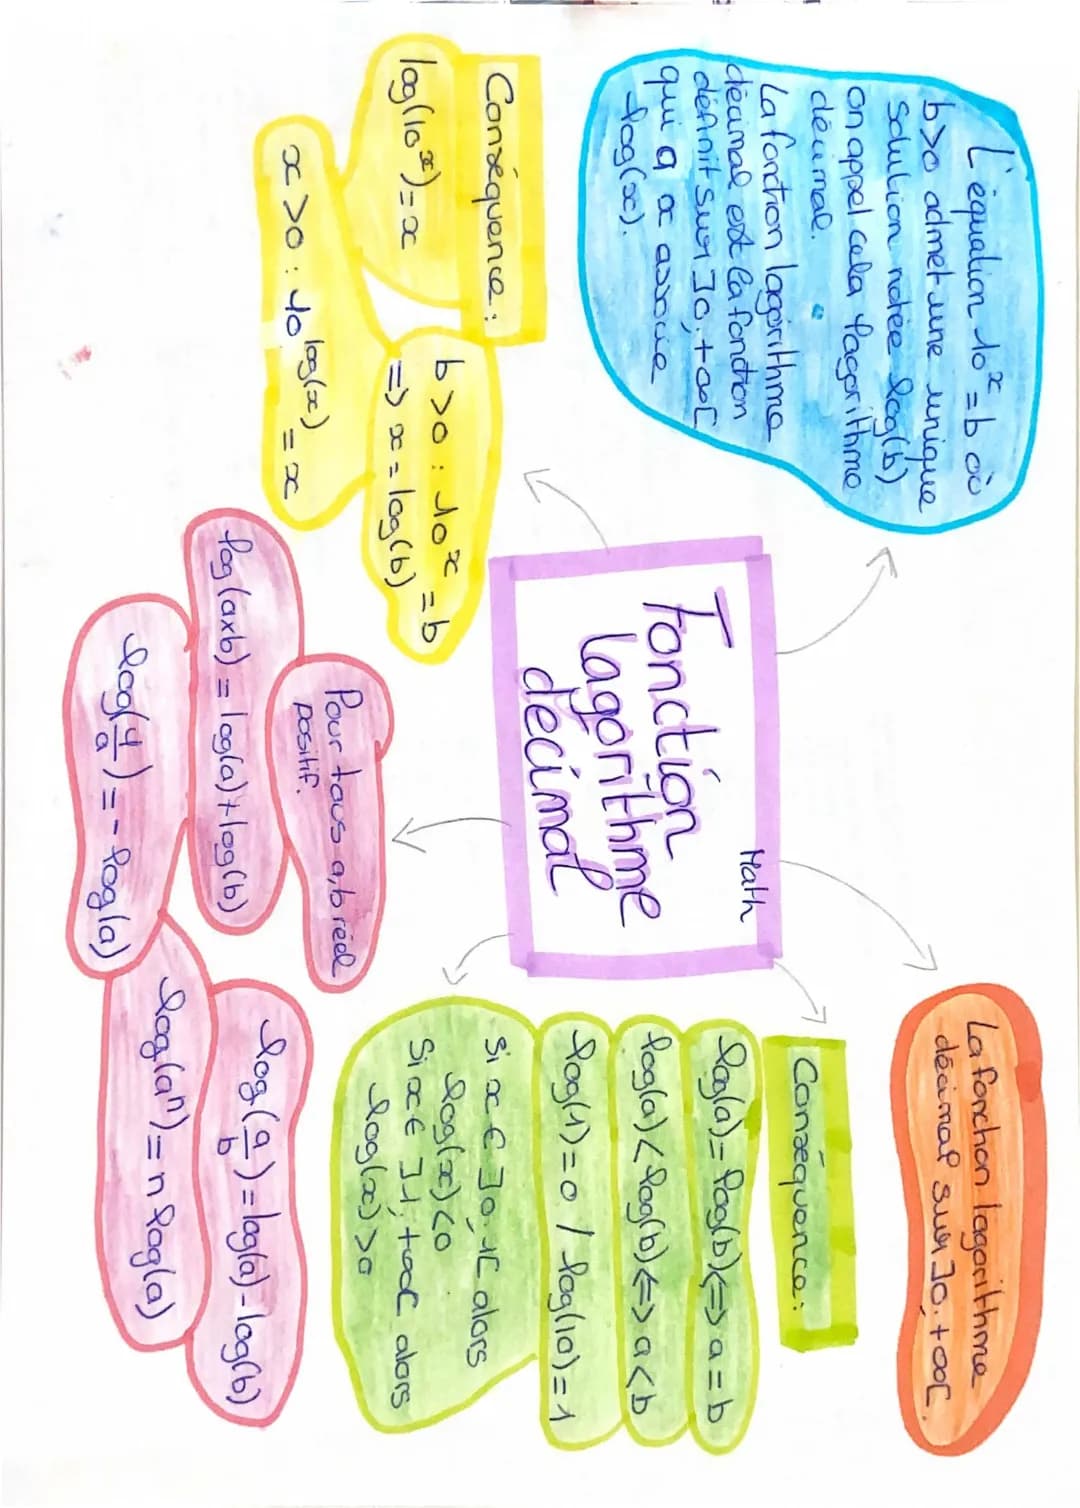 Math
Fonction
lagorithme
décimal
L'équation 10^x = b où
b>0 admet une unique
solution notée log(b)
on appel cela lagorithme
décimal.
La fonction lagorithme
décimal est la fonction
définit sur ]0;+∞[
qui a x associe
log(x).
Conséquence :
log(10^x) = x
b>0 : 10^x = b
=> x = log(b)
x>0 : 10^log(x) = x
Pour tous a,b réel
positif.
log(axb) = log(a)+log(b)
log(1/a) = -log(a)
log(a/b) = log(a)-log(b)
log(a^n) = n log(a)
La fonction lagorithme
décimal sur ]0;+∞[.
Conséquence :
log(a) = log(b) <=> a = b
log(a) < log(b) <=> a < b
log(1) = 0 / log(10) = 1
si x ∈ ]0;1[ alors
log(x) < 0
Si x ∈ ]1;+∞[ alors
log(x) > 0